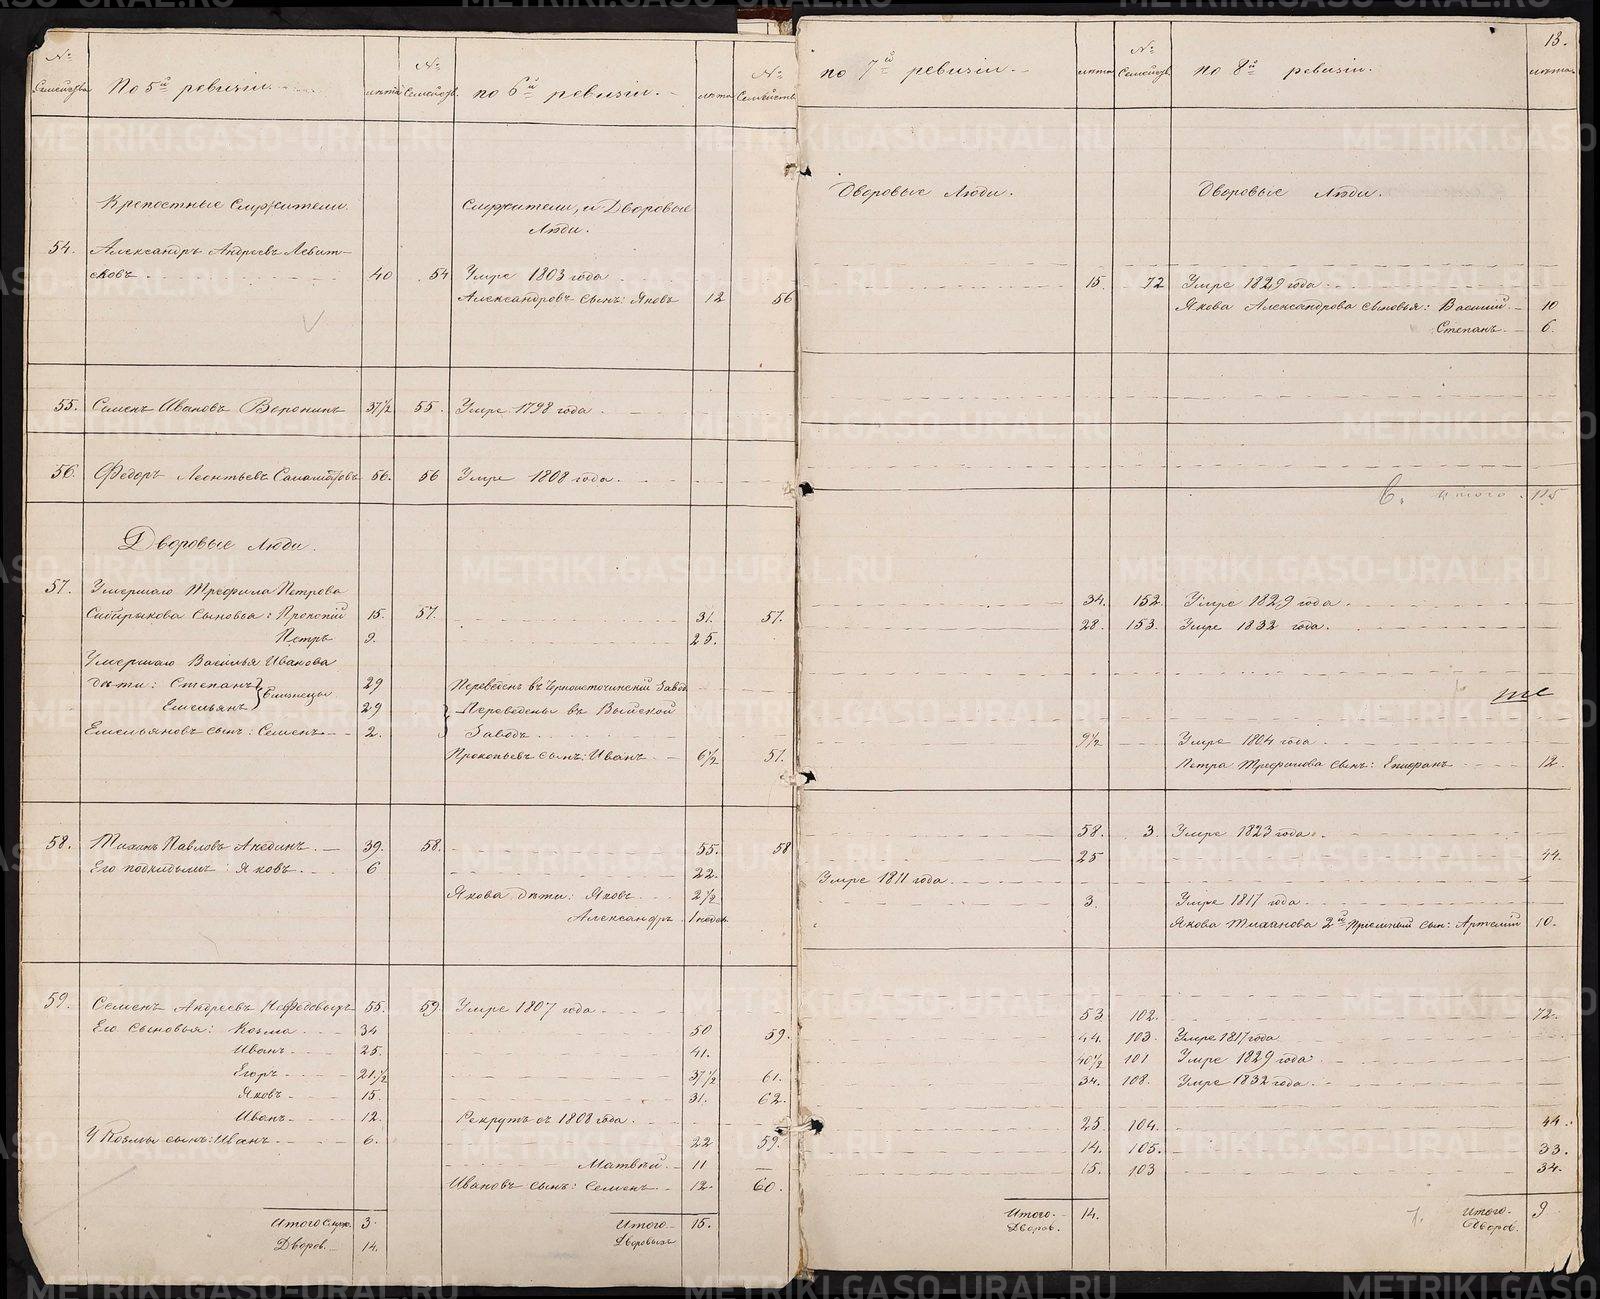 13.
№ Семейства По 5й ревизіи. лѣта № Семейств. по 6й ревизіи. лѣта № Семейств. по 7й ревизіи. лѣта № Семейств. по 8й ревизіи. лѣта
Крепостные Служители. Служители, и Дворовые Люди. Дворовые Люди. Дворовые Люди.
54. Александръ Андреевъ Левит-
сковъ 40 54 Умре 1803 года 15. 72 Умре 1829 года
Александровъ сынъ: Яковъ 12 56 Якова Александрова сыновья: Василій 10
Степанъ 6.
55. Семенъ Ивановъ Воронинъ 37½ 55. Умре 1798 года
56. Федоръ Леонтьевъ 56. 56 Умре 1808 года.
6. итого 115
Дворовые Люди.
57. Умершаго Трефила Петрова
Сибирякова сыновья: Прокопій 15. 57. 31. 57. 34. 152. Умре 1829 года.
Петръ 9. 25. 28. 153. Умре 1832 года.
Умершаго Василья Иванова
дѣти: Степанъ близнецы 29 Переведенъ въ Черноисточинскій завод
Емельянъ 29 Переведены въ Выйской
Емельяновъ сынъ: Семенъ 2. Заводъ
Прокопьевъ сынъ: Иванъ 6½ 51. 9½ Умре 1804 года
Петра Трефилова сынъ: Епифанъ 12.
58. Тихонъ Павловъ 39. 58. 55. 58 58. 3. Умре 1823 года.
Его подкидышъ: Яковъ 6 22. 25 44.
Якова дѣти: Яковъ 2½ Умре 1811 года
Александръ 1 недел. 3. Умре 1817 года
Якова Тихонова 2й Пріемный сын: Артемій 10.
59. Семенъ Андреевъ 55. 59. Умре 1807 года
Его сыновья: Козма 34 50 59. 53 102. 72.
Иванъ 25. 41. 44. 103. Умре 1817 года
Егоръ 21½ 37½ 61. 40½ 101 Умре 1829 года
Яковъ 15. 31. 62. 34. 108. Умре 1832 года
Иванъ 12. Рекрутъ съ 1808 года.
У Козмы сынъ: Иванъ 6. 22 59. 25 104. 44.
Матвѣй 11 14. 105. 33.
Ивановъ сынъ: Семенъ 12. 60. 15. 103 34.
Итого Служ. 3. Итого 15. Итого. 14. итого. 9
Дворов. 14. Дворовыхъ Дворов. Дворов.
METRIKI.GASO-URAL.RU